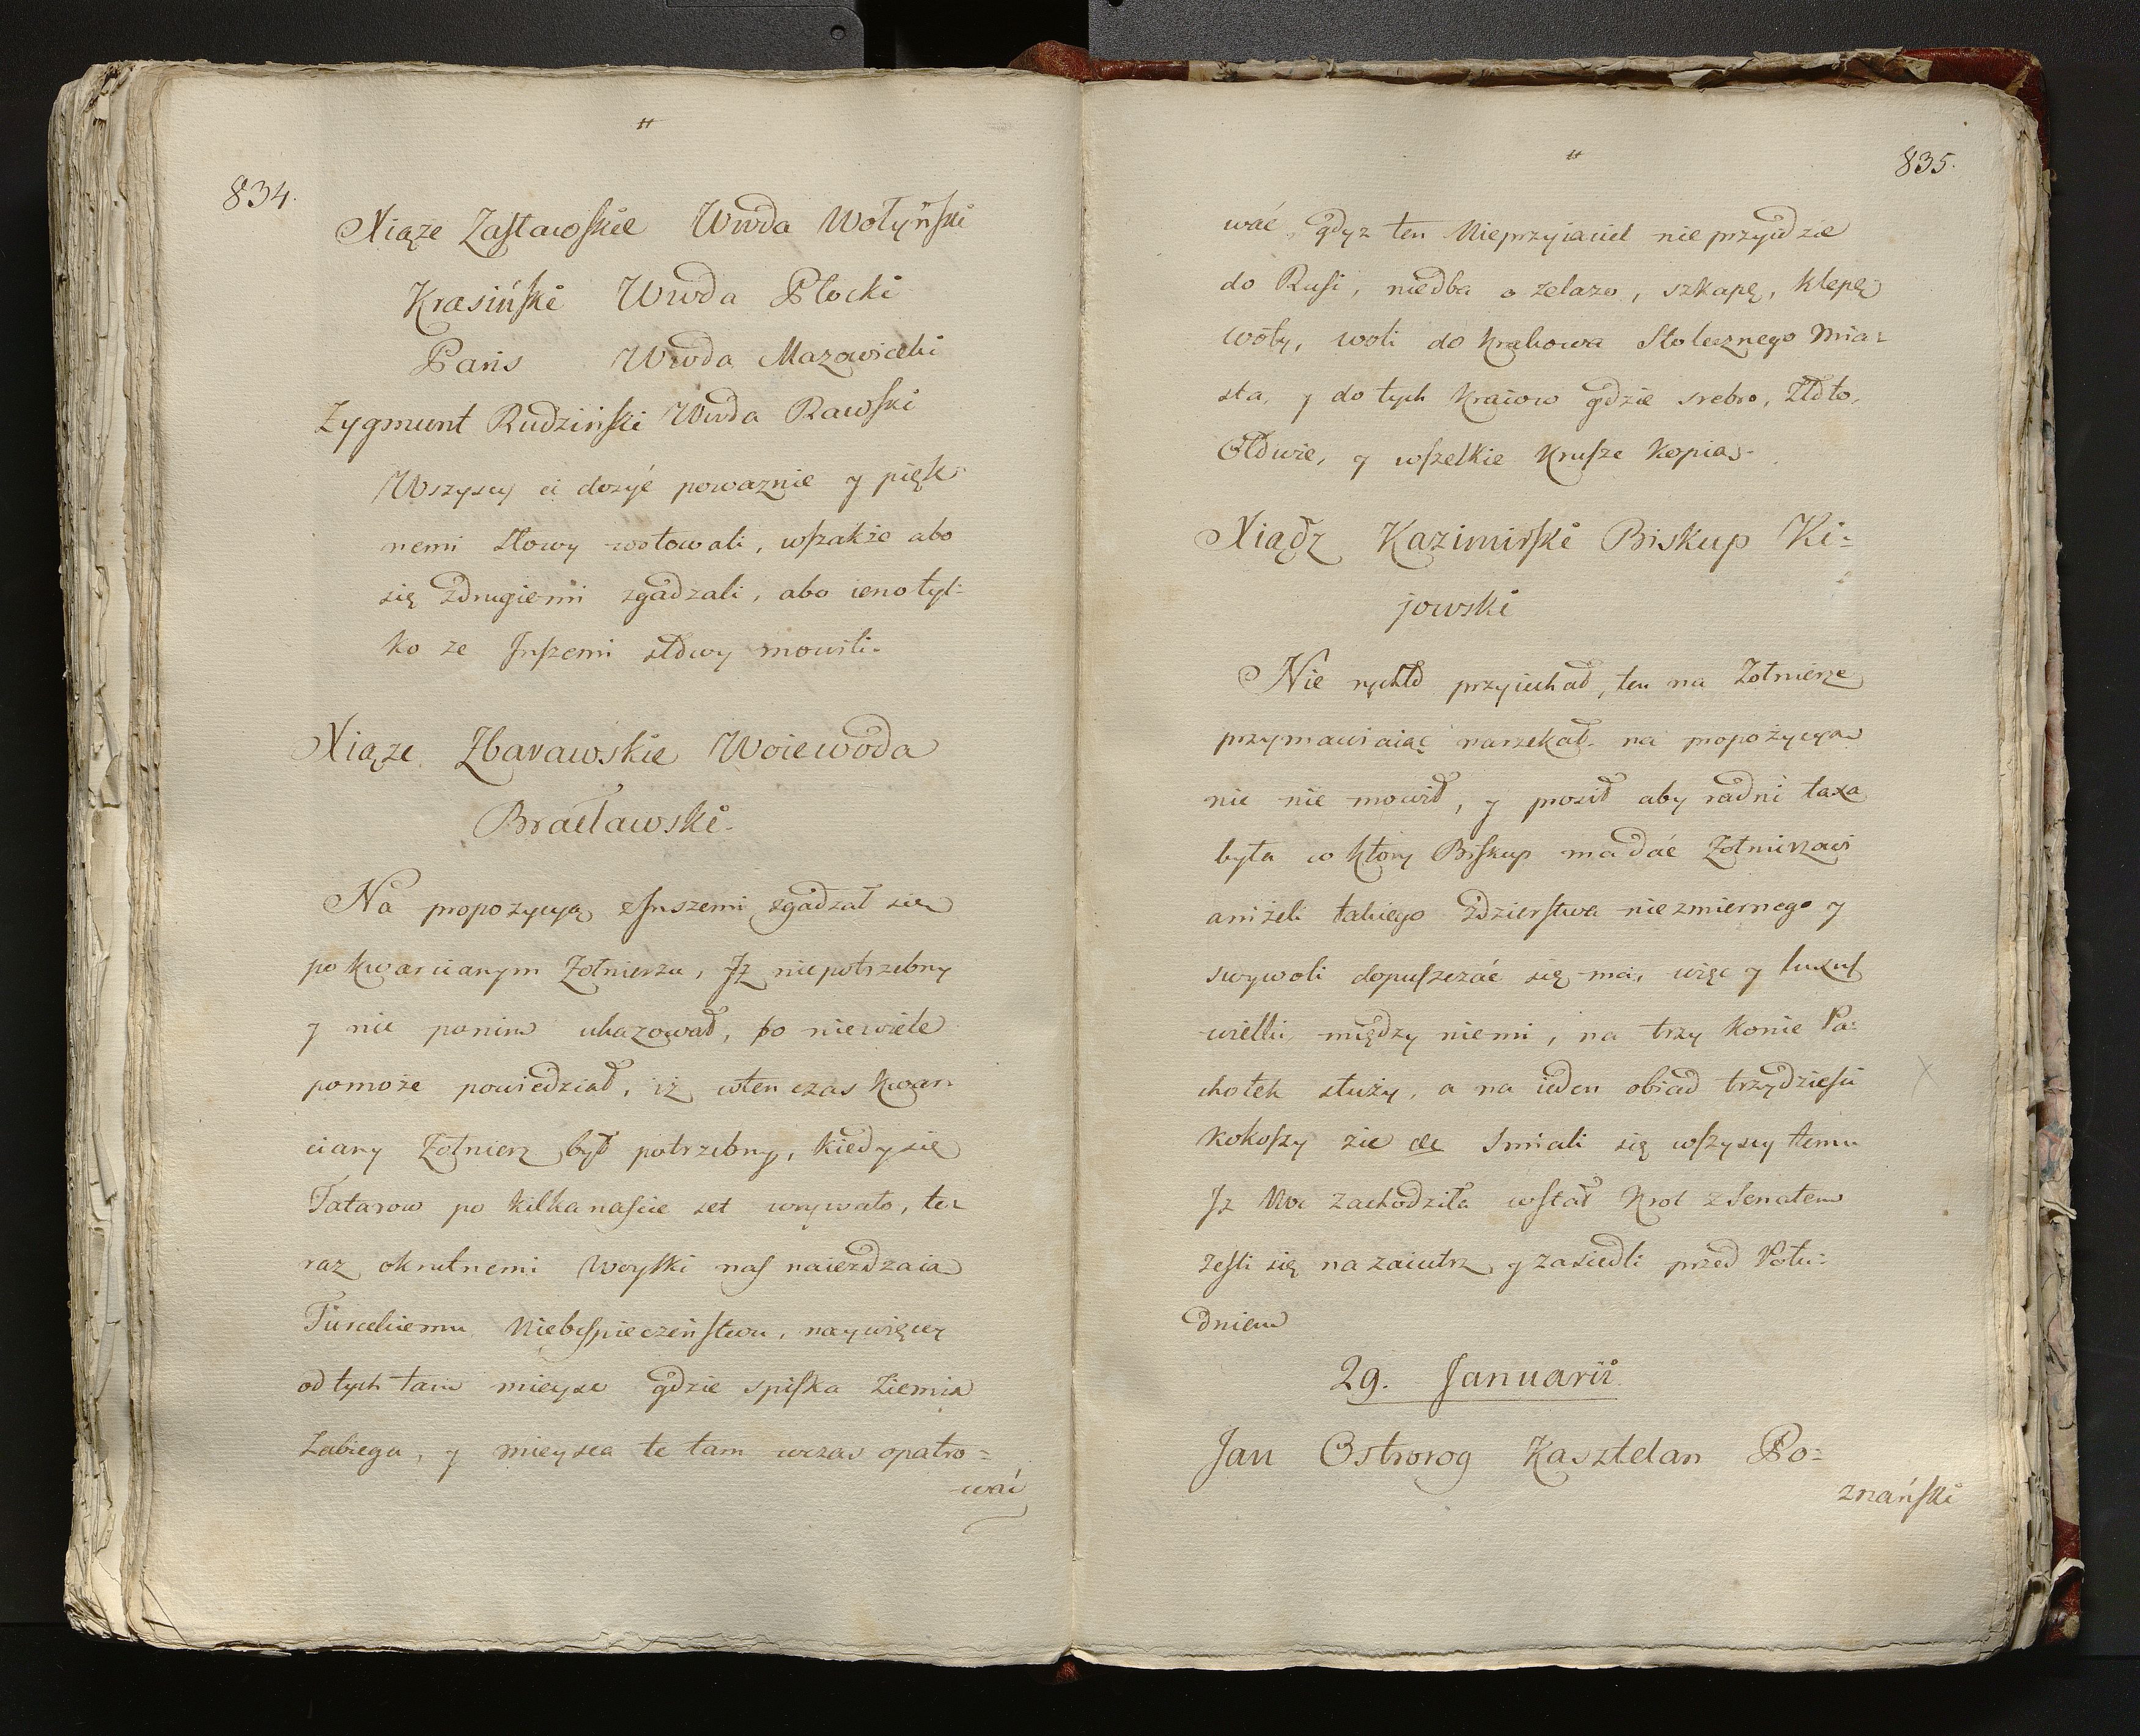 834.
Xiąze Zasławskie Wwda Wołyński
Krasiński Wwda Płocki
Paris Wwda Mazowiecki
Zygmunt Rudziński Wwda Rawski
Wszyscy ci dosyć powaznie y pięk-
nemi słowy wotowali, wszakże abo
się zdrugiemi zgadzali, abo ieno tyl-
ko ze Inszemi słowy mowili.
Xiąze Zbarawskie Woiewoda
Bracławski.
Na propozycyą zInszemi zgadzał się
po kwarcianym Zołnierzu, Iz niepotrzebny
y nic ponim ukazował, bo niewiele
pomoże powiedział, iż wten czas kwar-
ciany Zołnierz był potrzebny, kiedy się
Tatarow po kilkanaście set wrywało, te-
raz okrutnemi woyski nas naiezdzaia
Tureckiemu Niebespieczeństwu, naywięcey
od tych tam mieysc gdzie spiska Ziemia
Zabiega, y mieysca te tam wczas opatro=
wać
835.
wać, gdyz ten Nieprzyiaciel nie przyidzie
do Rusi, niedba o zelazo, szkapę, klepę
woły, woli do Krakowa Stolecznego Mia-
sta, y do tych Kraiow gdzie srebro, złoto,
Ołowie, y wszelkie Krusze kopias.
Xiądz Kazimirski Biskup Ki=
jowski
Nie rychło przyiechał, ten na Zołnierze
przymawiaiąc narzekał. na propozycyą
nic nie mowił, y prosił aby radni taxa
była w ktory Biskup ma dać Zołnierzowi
aniżeli takiego zdzierstwa niezmiernego y
swywoli dopuszczać się ma, więc y luxus
wielki między niemi, na trzy konie Pa=
chołek służy, a na ieden obiad trzydzieści
kokoszy zie &c Smiali się wszyscy temu
Iz Noc zachodziła wstał Krol z Senatem
zeszli się nazaiutrz y zasiedli przed Połu=
dniem
29. Januarii
Jan Ostrorog Kasztelan Po=
znański